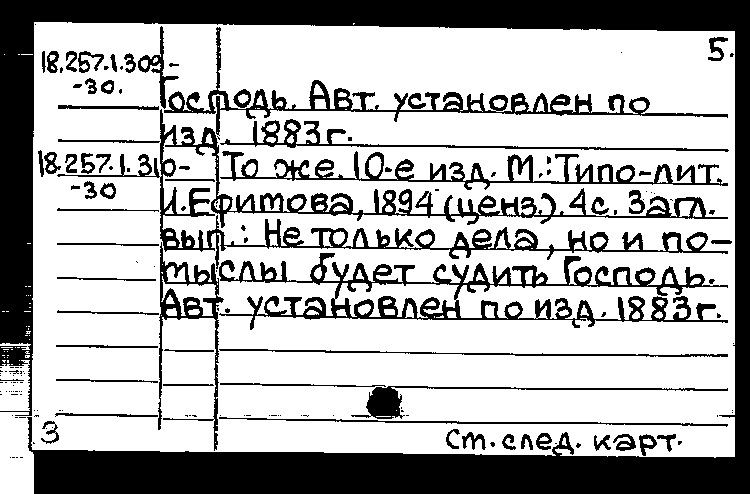 5.
18.257.1.309-
-30.
Господь. Авт. установлен по
изд. 1883г.
18.257.1.310- То же. 10-е изд. М.: Типо-лит.
-30
И.Ефимова, 1894 (ценз.). 4с. Загл.
вып.: Не только дела, но и по-
мыслы будет судить Господь.
Авт. установлен по изд. 1883г.
3
См. след. карт.